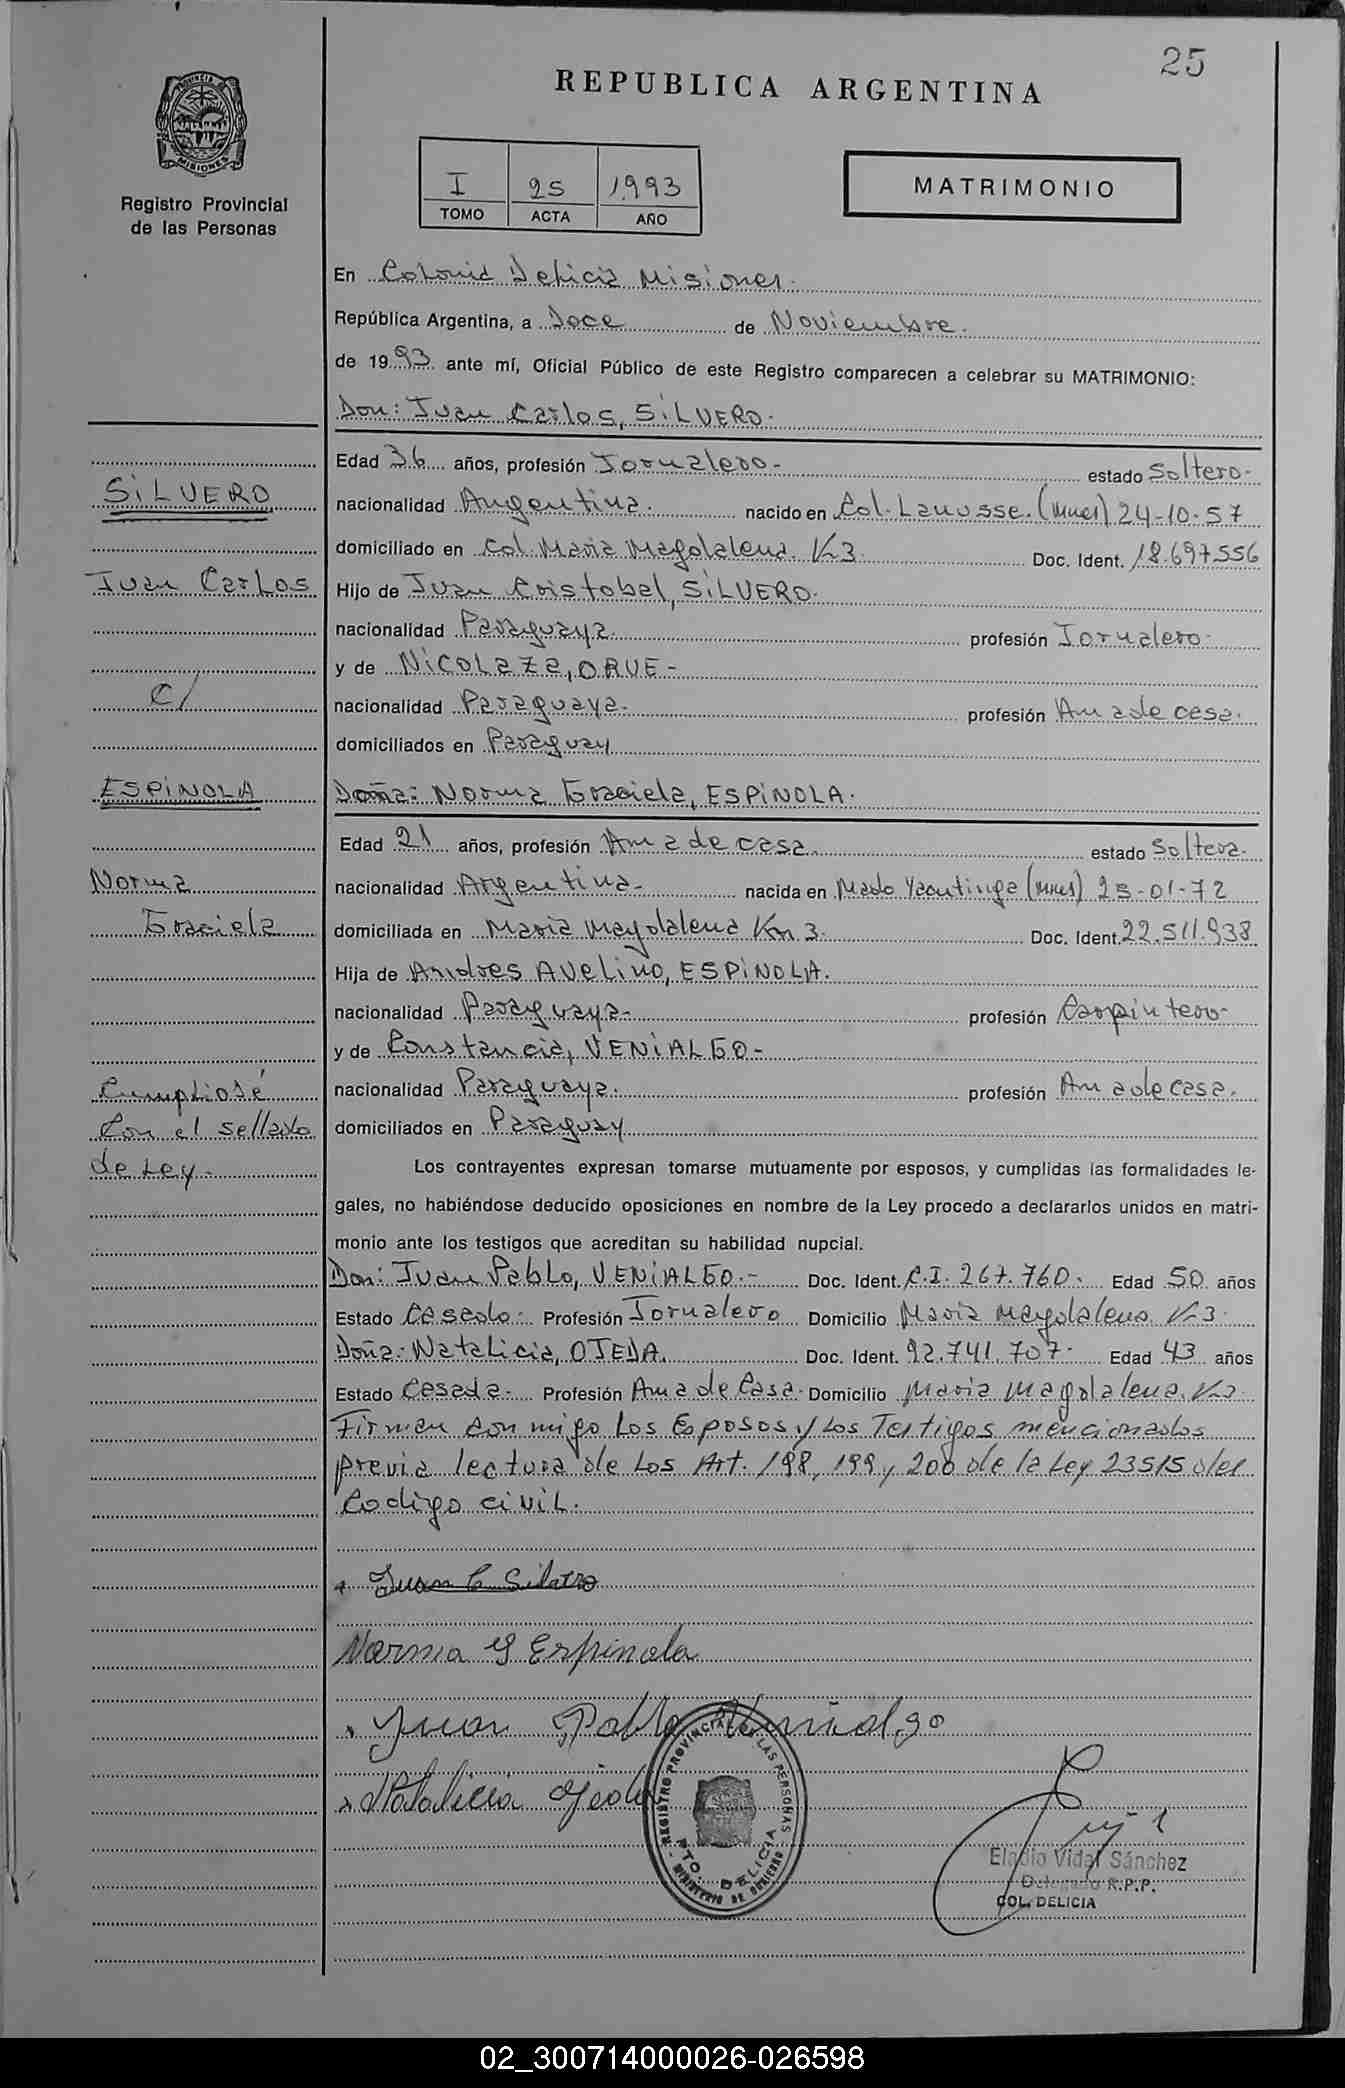 25
REPUBLICA ARGENTINA
PROVINCIA DE MISIONES
Registro Provincial
de las Personas
I 25 1993
TOMO ACTA AÑO
MATRIMONIO
En Colonia Delicia Misiones.
República Argentina, a Doce de Noviembre.
de 1993 ante mí, Oficial Público de este Registro comparecen a celebrar su MATRIMONIO:
Don: Juan Carlos, SiLVERO.
Edad 36 años, profesión Jornalero- estado Soltero-
SiLVERO
nacionalidad Argentina. nacido en Col. Lanusse. (Mnes) 24-10-57
domiciliado en Col. Maria Magdalena. K3. Doc. Ident. 18.697.556
Juan Carlos
Hijo de Juan Cristobal, SiLVERO.
nacionalidad Paraguaya. profesión Jornalero-
y de NiCOLaZa, ORUE-
c/
nacionalidad Paraguaya. profesión Ama de casa.
domiciliados en Paraguay
ESPiNOLA
Doña: Norma Graciela, ESPiNOLA.
Edad 21 años, profesión Ama de casa. estado Soltera.
Norma
nacionalidad Argentina- nacida en Mado Yacutinga (Mnes) 25-01-72
Graciela
domiciliada en Maria Magdalena Km 3. Doc. Ident. 22.511.938
Hija de Andres AVeLino, ESPiNOLA.
nacionalidad Paraguaya- profesión Carpintero-
y de Constancia, VENiALGO-
Cumpliosé
nacionalidad Paraguaya. profesión Ama de casa.
Con el sellado
domiciliados en Paraguay
de Ley.-
Los contrayentes expresan tomarse mutuamente por esposos, y cumplidas las formalidades le-
gales, no habiéndose deducido oposiciones en nombre de la Ley procedo a declararlos unidos en matri-
monio ante los testigos que acreditan su habilidad nupcial.
Don: Juan Pablo, VENiALGO.- Doc. Ident. C.I. 267.760. Edad 50 años
Estado Casado- Profesión Jornalero Domicilio Maria Magdalena. K3.
Doña: Natalicia, OJEDA. Doc. Ident. 92.741.707. Edad 43 años
Estado Casada- Profesión Ama de Casa. Domicilio Maria Magdalena. K3.
Firman conmigo Los Esposos y Los Testigos mencionados
previa lectura de Los Art. 198, 199, 200 de la Ley 23515 del
Codigo civiL.
Juan C Silvero
Norma G Espinola
Juan Pablo Venialgo
Natalicia Ojeda
REGISTRO PROVINCIAL DE LAS PERSONAS
PTO. DELICIA
MINISTERIO DE GOBIERNO
Eladio Vidal Sánchez
Delegado R.P.P.
COL. DELICIA
02_300714000026-026598